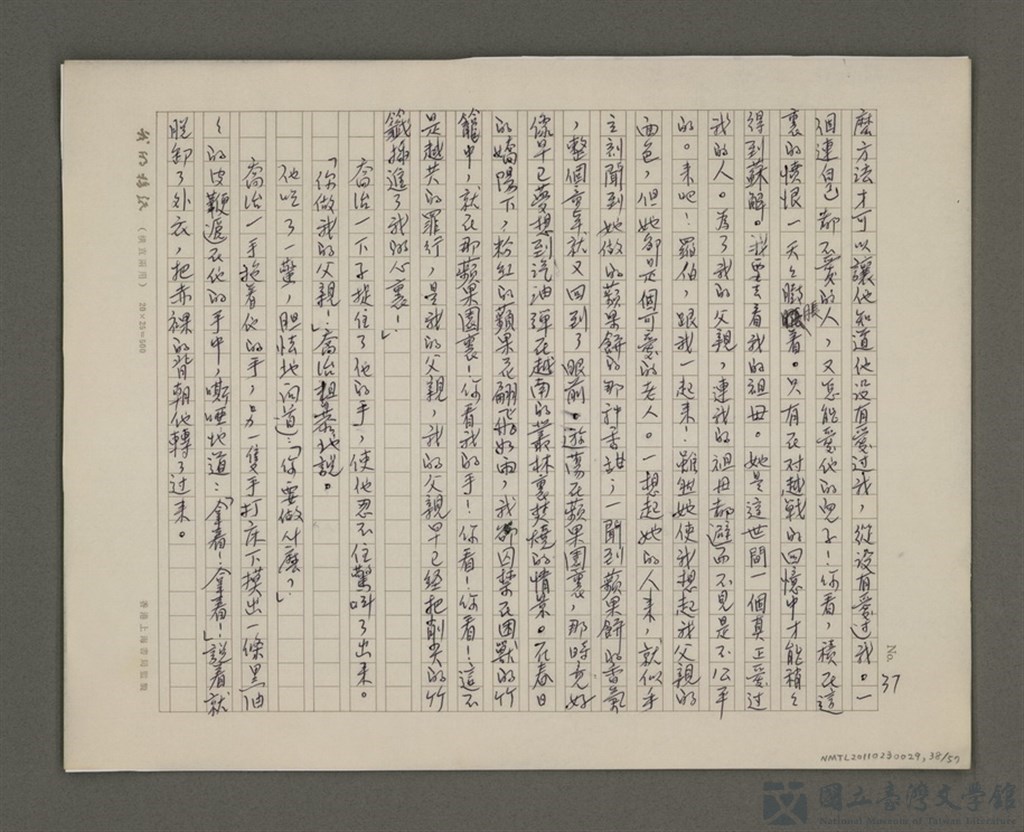 No. 37
麼方法才可以讓他知道他沒有愛过我，從沒有愛过我。一
個連自己都不愛的人，又怎能愛他的兒子！你看，積在這
裏的憤恨一天々膨脹着。只有在对越戰的回憶中才能稍々
得到蘇解。我要去看我的祖母。她是這世間一個真正愛过
我的人。為了我的父親，連我的祖母都避而不見是不公平
的。来吧！羅伯，跟我一起来！雖然她使我想起我父親的
面色，但她卻是個可愛的老人。一想起她的人来，就似乎
立刻聞到她做的蘋果餅的那种香甜；一聞到蘋果餅的香氣
，整個童年就又回到了眼前。遊蕩在蘋果園裏，那時竟好
像早已夢想到汽油弹在越南的叢林裏焚燒的情景。在春日
的嬌陽下，粉紅的蘋果花翩飛如雨，我卻囚禁在困獸的竹
籠中，就在那蘋果園裏！你看我的手！你看！你看！這不
是越共的罪行，是我的父親，我的父親早已經把削尖的竹
籤插進了我的心裏！」
喬治一下子捉住了他的手，使他忍不住驚叫了出来。
「你做我的父親！」喬治粗暴地說。
他吃了一驚，胆怯地问道：「你要做什麼？」
喬治一手拖着他的手，另一隻手打床下摸出一條黑油
々的皮鞭遞在他的手中，嘶啞地道：「拿着！拿着！」說着就
脱卸了外衣，把赤裸的背朝他轉了过来。
（橫直兩用） 20×25=500
香港上海書局監製
NMTL20110230029, 38/57
國立臺灣文學館
National Museum of Taiwan Literature